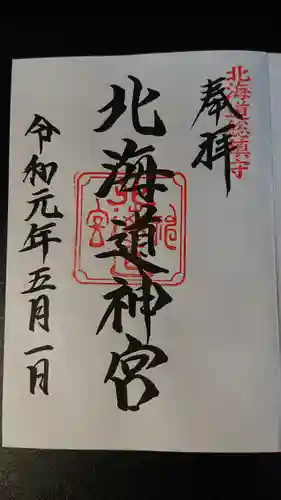 北海道総鎮守
奉拝
北海道神宮
令和元年五月一日